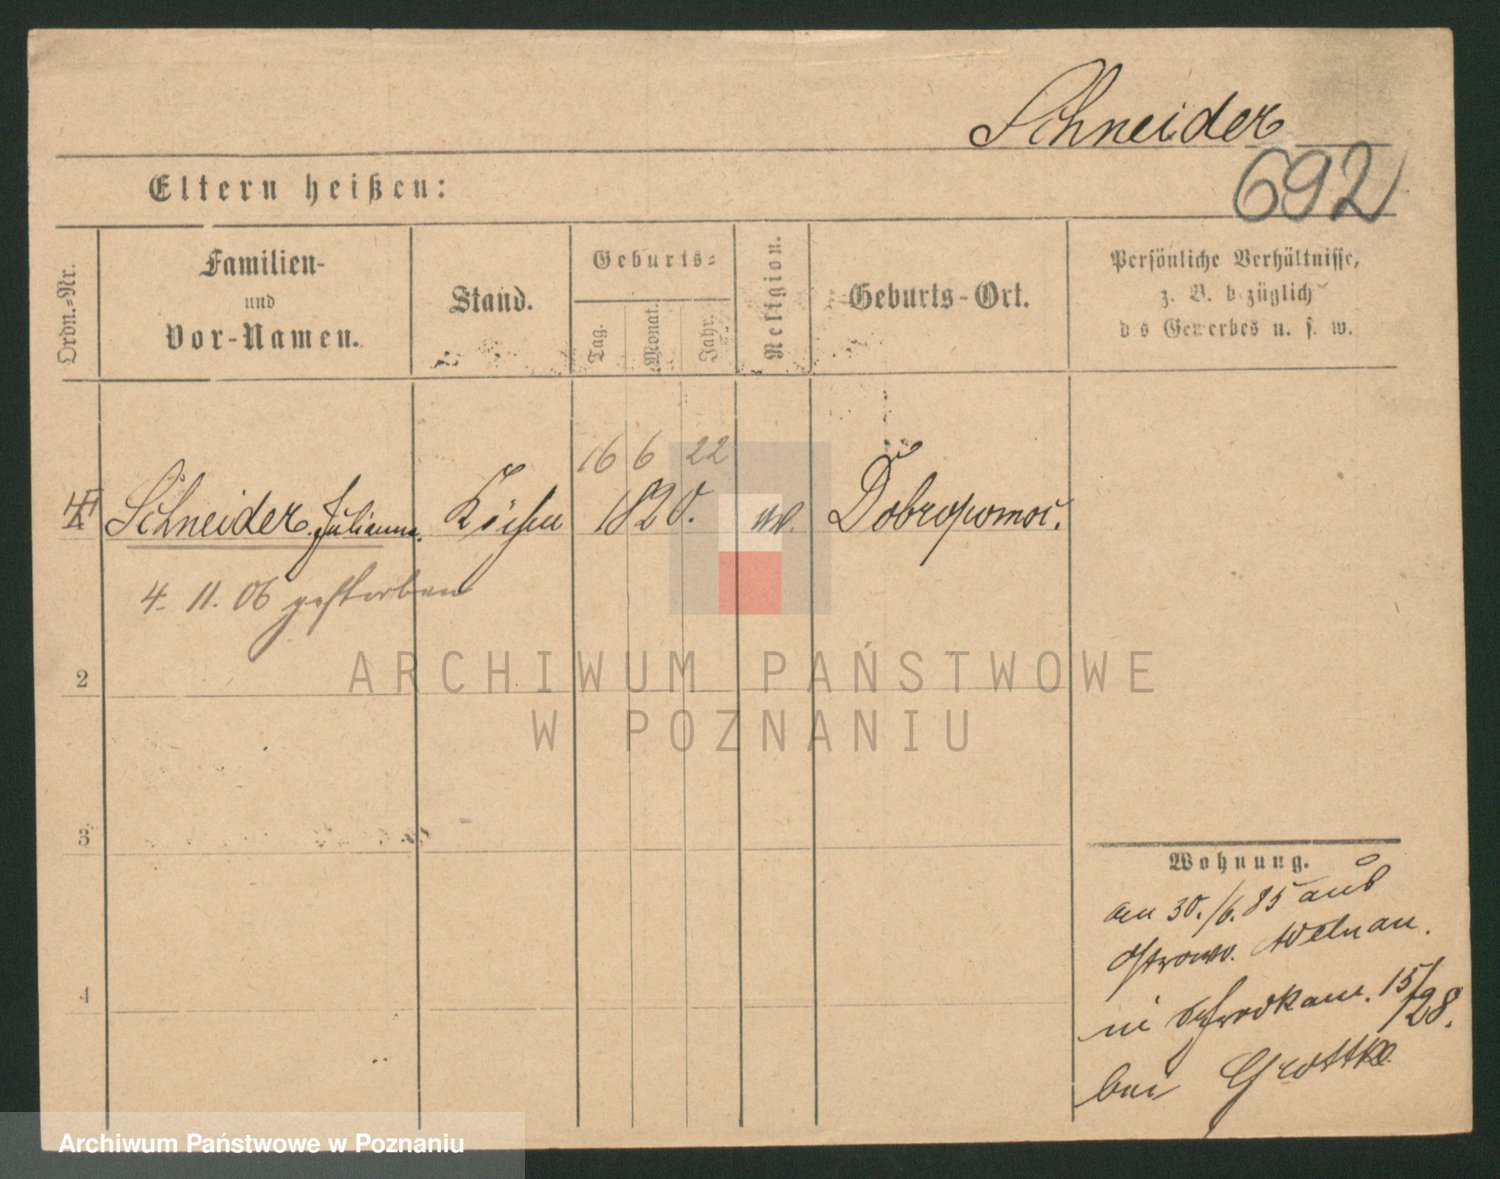 Schneider
692
Eltern heißen:
Ordn.-Nr.
Familien-
und
Vor-Namen.
Stand.
Geburts-
Tag.
Monat.
Jahr.
Religion.
Geburts-Ort.
Persönliche Verhältnisse,
z. B. bezüglich
des Gewerbes u. s. w.
16 6 22
Schneider Julianna. 1820. Dobropomoc.
4. 11. 06 gestorben
2
3
4
Wohnung.
am 30./6. 85 aus
Ostrowo. Adelnau.
in 15/28.
bei Grottke.
ARCHIWUM PAŃSTWOWE
W POZNANIU
Archiwum Państwowe w Poznaniu